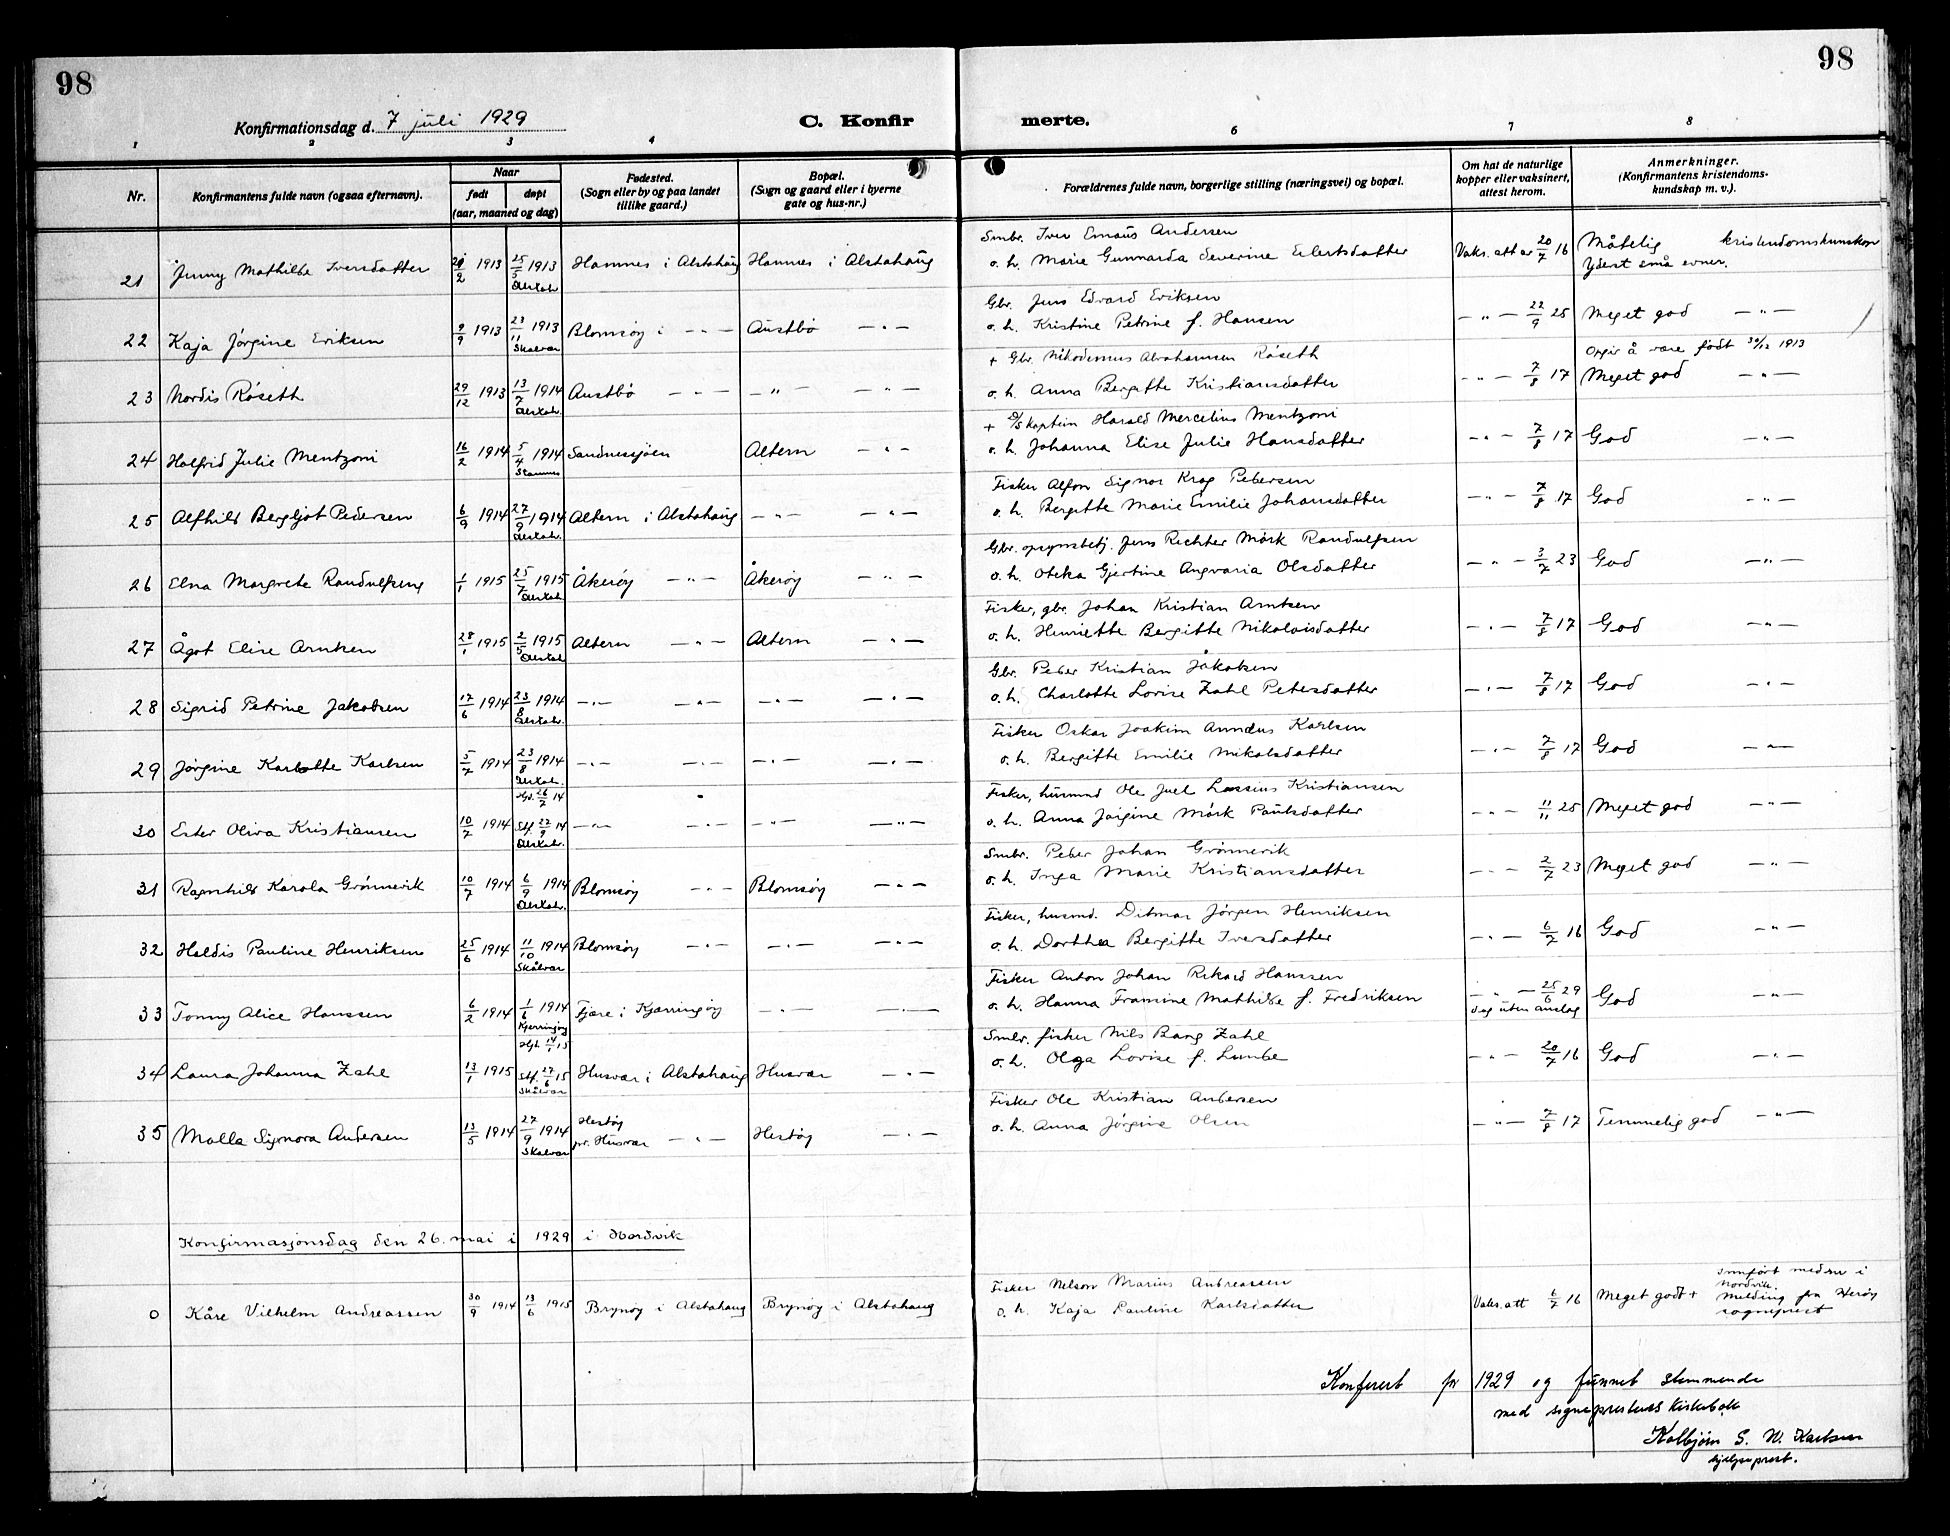 98
98
Konfirmationsdag d. 7 juli 1929
C. Konfir
merte.
1 2 3 4 6 7 8
Nr.
Konfirmantens fulde navn (ogsaa efternavn).
Naar
født døpt
(aar, maaned og dag)
Fødested.
(Sogn eller by og paa landet
tillike gaard.)
Bopæl.
(Sogn og gaard eller i byerne
gate og hus-nr.)
Forældrenes fulde navn, borgerlige stilling (næringsvei) og bopæl.
Om hat de naturlige
kopper eller vaksinert,
attest herom.
Anmerkninger.
(Konfirmantens kristendoms-
kundskap m. v.).
Smbr. Iver Emaüs Andersen
21 Jenny Mathilde Iversdatter 2/2 1913 25/5 1913 Hamnes i Alstahaüg Hamnes i Alstahaüg o. h. Marie Gunnarda Severine Eilertsdatter Vaks. att av 20/7 16 Måtelig kristendomskunskap
Alstah. Yderst små evner.
Gbr. Jens Edvard Eriksen
22 Kaja Jörgine Eriksen 9/9 1913 23/11 1913 Blomsöy i -"- Aüstbö -"- o. h. Kristine Petrine f. Hansen -"- 22/9 25 Meget god -"-
Skålvær
+ Gbr. Nikodemus Abrahamsen Röseth Opgir å være født 30/12 1913
23 Nordis Röseth 29/12 1913 13/7 1914 Aüstbö -"- -"- -"- o. h. Anna Bergitte Kristiansdatter -"- 7/8 17 Meget god -"-
Alstah.
+ D/S kaptein Harald Mercelius Mentzoni
24 Halfrid Julie Mentzoni 16/2 1914 5/4 1914 Sandnessjöen Altern -"- o. h. Johanna Elise Julie Hansdatter -"- 7/8 17 God -"-
Stamnes
Fisker Alfon Signor Krog Pedersen
25 Alfhild Bergljot Pedersen 6/9 1914 27/9 1914 Altern i Alstahaüg -"- -"- o. h. Bergitte Marie Emilie Johansdatter -"- 7/8 17 God -"-
Alstah.
Gbr. opsynsbetj. Jens Richter Mörk Randulfsen
26 Elna Margrete Randulfsen 1/1 1915 25/7 1915 Åkeröy -"- Åkeröy -"- o. h. Oteka Gjertine Angvaria Olsdatter -"- 3/7 23 God -"-
Alstah.
Fisker, gbr. Johan Kristian Arntsen
27 Ågot Elise Arntsen 28/1 1915 2/5 1915 Altern -"- Altern -"- o. h. Henriette Bergitte Nikolaisdatter -"- 7/8 17 God -"-
Alstah.
Gbr. Peder Kristian Jakobsen
28 Sigrid Petrine Jakobsen 17/6 1914 23/8 1914 -"- -"- -"- -"- o. h. Charlotte Lovise Zahl Petersdatter -"- 7/8 17 God -"-
Alstah.
Fisker Oskar Joakim Amndus Karlsen
29 Jörgine Karlotte Karlsen 5/7 1914 23/8 1914 -"- -"- -"- -"- o. h. Bergitte Emilie Nikolsdatter -"- 7/8 17 God -"-
Alstah.
Hjd. 26/7 14 Fisker, hüsmand Ole Juel Lassius Kristiansen
30 Ester Oliva Kristiansen 10/7 1914 Stf. 27/9 14 -"- -"- -"- -"- o. h. Anna Jörgine Mörk Paülsdatter -"- 11/11 25 Meget god -"-
Alstah.
Smbr. Peder Johan Grönnevik
31 Ragnhild Karola Grönnevik 10/7 1914 6/9 1914 Blomsöy -"- Blomsöy -"- o. h. Inga Marie Kristiansdatter -"- 2/7 23 Meget god -"-
Alstah.
Fisker, husmd. Ditmar Jörgen Henriksen
32 Heldis Pauline Henriksen 25/6 1914 11/10 1914 Blomsöy -"- -"- -"- o. h. Dorthea Bergitte Iversdatter -"- 6/7 16 God -"-
Skålvær
Fisker Anton Johan Rikard Hanssen
33 Tonny Alice Hanssen 6/2 1914 1/6 1914 Fjære i Kjærringöy -"- -"- o. h. Hanna Framine Mathilde f. Fredriksen -"- 25/6 29 God -"-
Kjerringöy uten anslag
Hjd. 14/1 15 Smbr. fisker Nils Bang Zahl
34 Laura Johanna Zahl 13/1 1915 Stf. 27/6 15 Husvær i Alstahaüg Husvær -"- o. h. Olga Lovise f. Lunde -"- 20/7 16 God -"-
Skålvær
Fisker Ole Kristian Andersen
35 Malla Signora Andersen 13/5 1914 27/9 1914 Hestöy pr. Husvær -"- Hestöy -"- o. h. Anna Jörgine Olsen -"- 7/8 17 Temmelig god -"-
Skålvær
Konfirmasjonsdag den 26. mai i 1929 i Nordvik
Fisker Nelson Marius Andreassen innført i
0 Kåre Vilhelm Andreassen 30/9 1914 13/6 1915 Brynöy i Alstahaug Brynöy i Alstahaug o. h. Kaja Pauline Karlsdatter Vaks. att 6/7 16 Meget godt + Nordvik.
Melding fra Heröy
sogneprest
Konferert for 1929 og funnet stemmende
med sogneprestens kirkebok
Kolbjørn S. W. Karlsen
hjelpeprest.